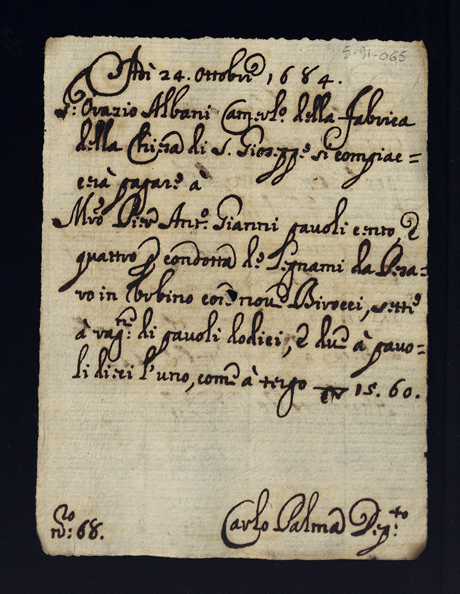 5-91-065
Adi 24. Ottobre 1684.
Sr: Orazio Albani Camerlo. della Fabrica
della Chiesa di S. Gioseppe si compiac=
cerà pagare à
Mro Pier Anto. Gianni pauoli cento, e
quattro p condotta de Legnami da Pesa=
ro in Urbino con noue Birocci, sette
à ragne: di pauoli dodici, e due à pauo=
li dieci l'uno, come à tergo 15. 60.
no: 68.
Carlo Palma Depto